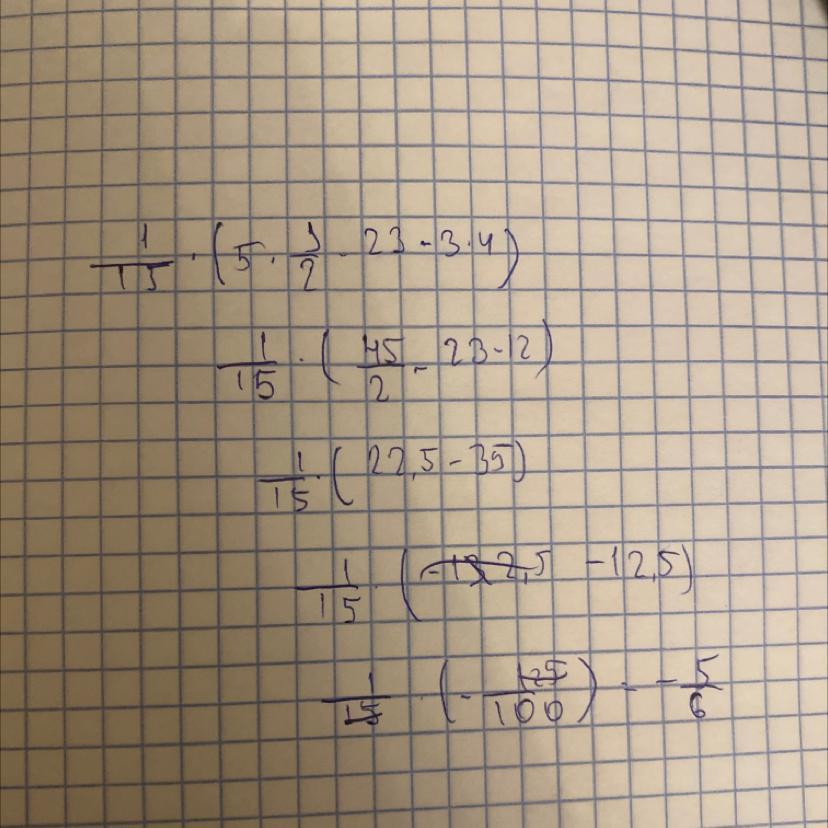 1/15 · (5 · 9/2 - 23 - 3·4)
1/15 · (45/2 - 23-12)
1/15 · (22,5 - 35)
1/15 · ( -12,5)
1/15 · (- 125/100) = - 5/6